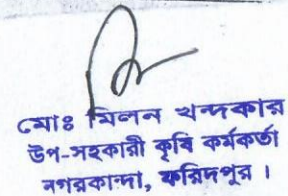 মোঃ মিলন খন্দকার
উপ-সহকারী কৃষি কর্মকর্তা
নগরকান্দা, ফরিদপুর ।